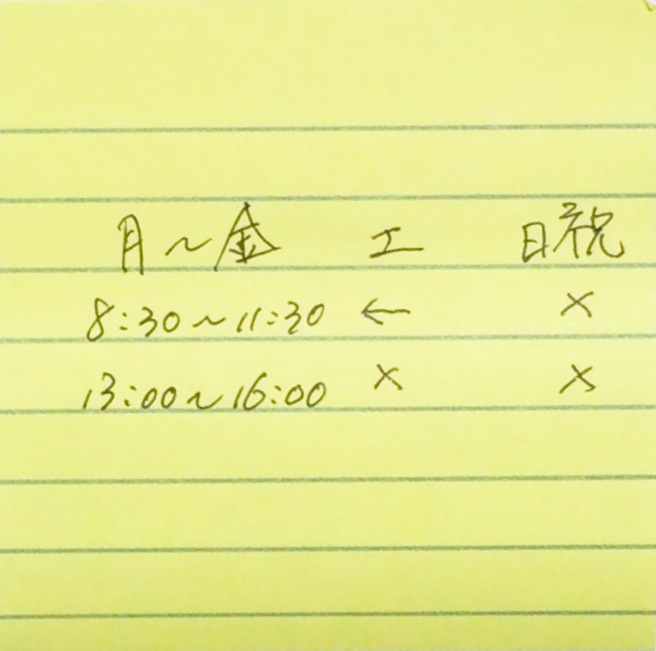 月～金 土 日祝
8:30～11:30 ← ×
13:00～16:00 × ×